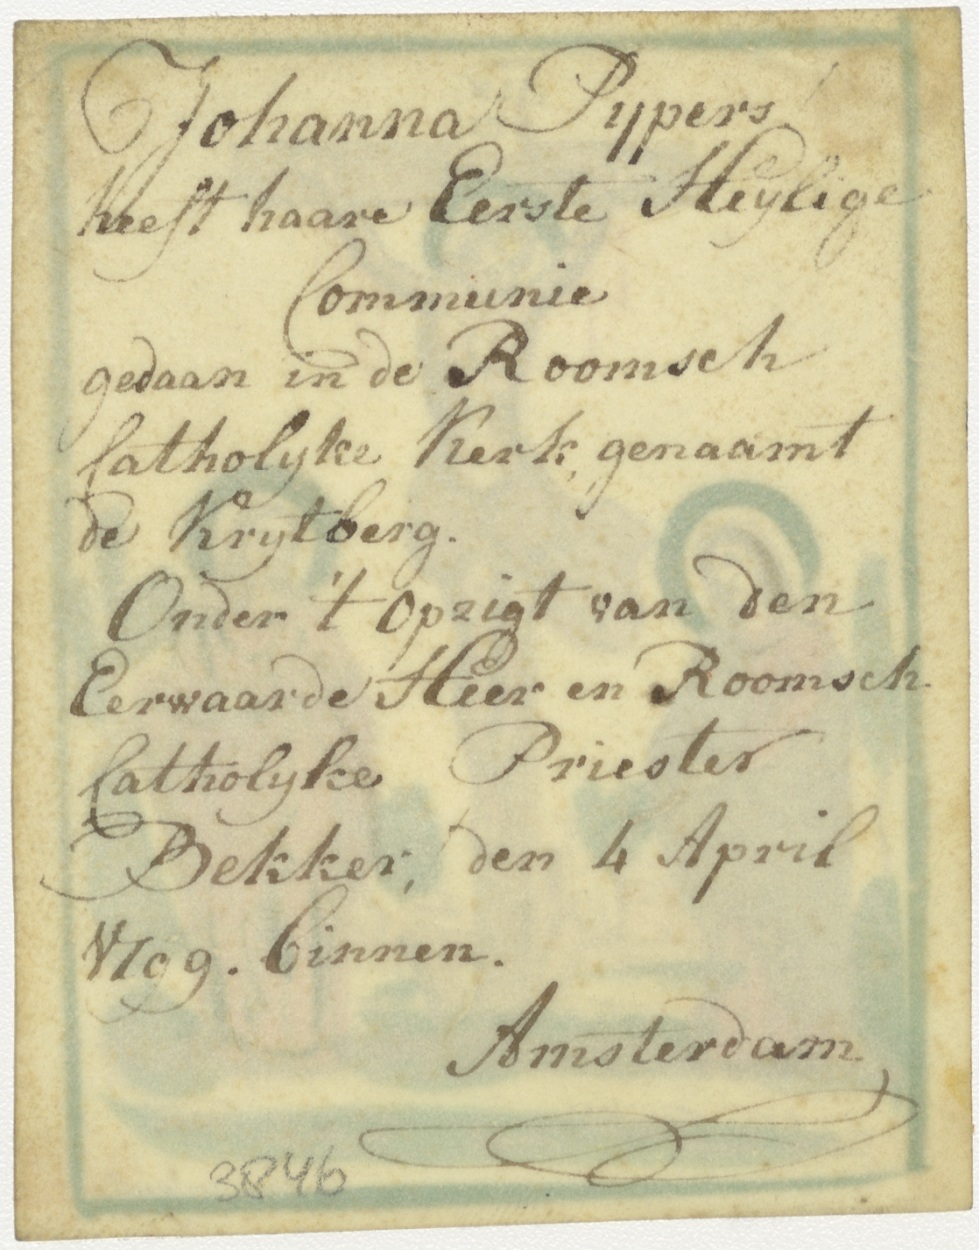 Johanna Pypers
heeft haare Eerste Heylige
Communie
gedaan in de Roomsch
Catholyke Kerk, genaamt
de Krytberg.
Onder 't opzigt van den
Eerwaarde Heer en Roomsch
Catholyke Priester
Bekker, den 4 April
1799. binnen.
Amsterdam
3846